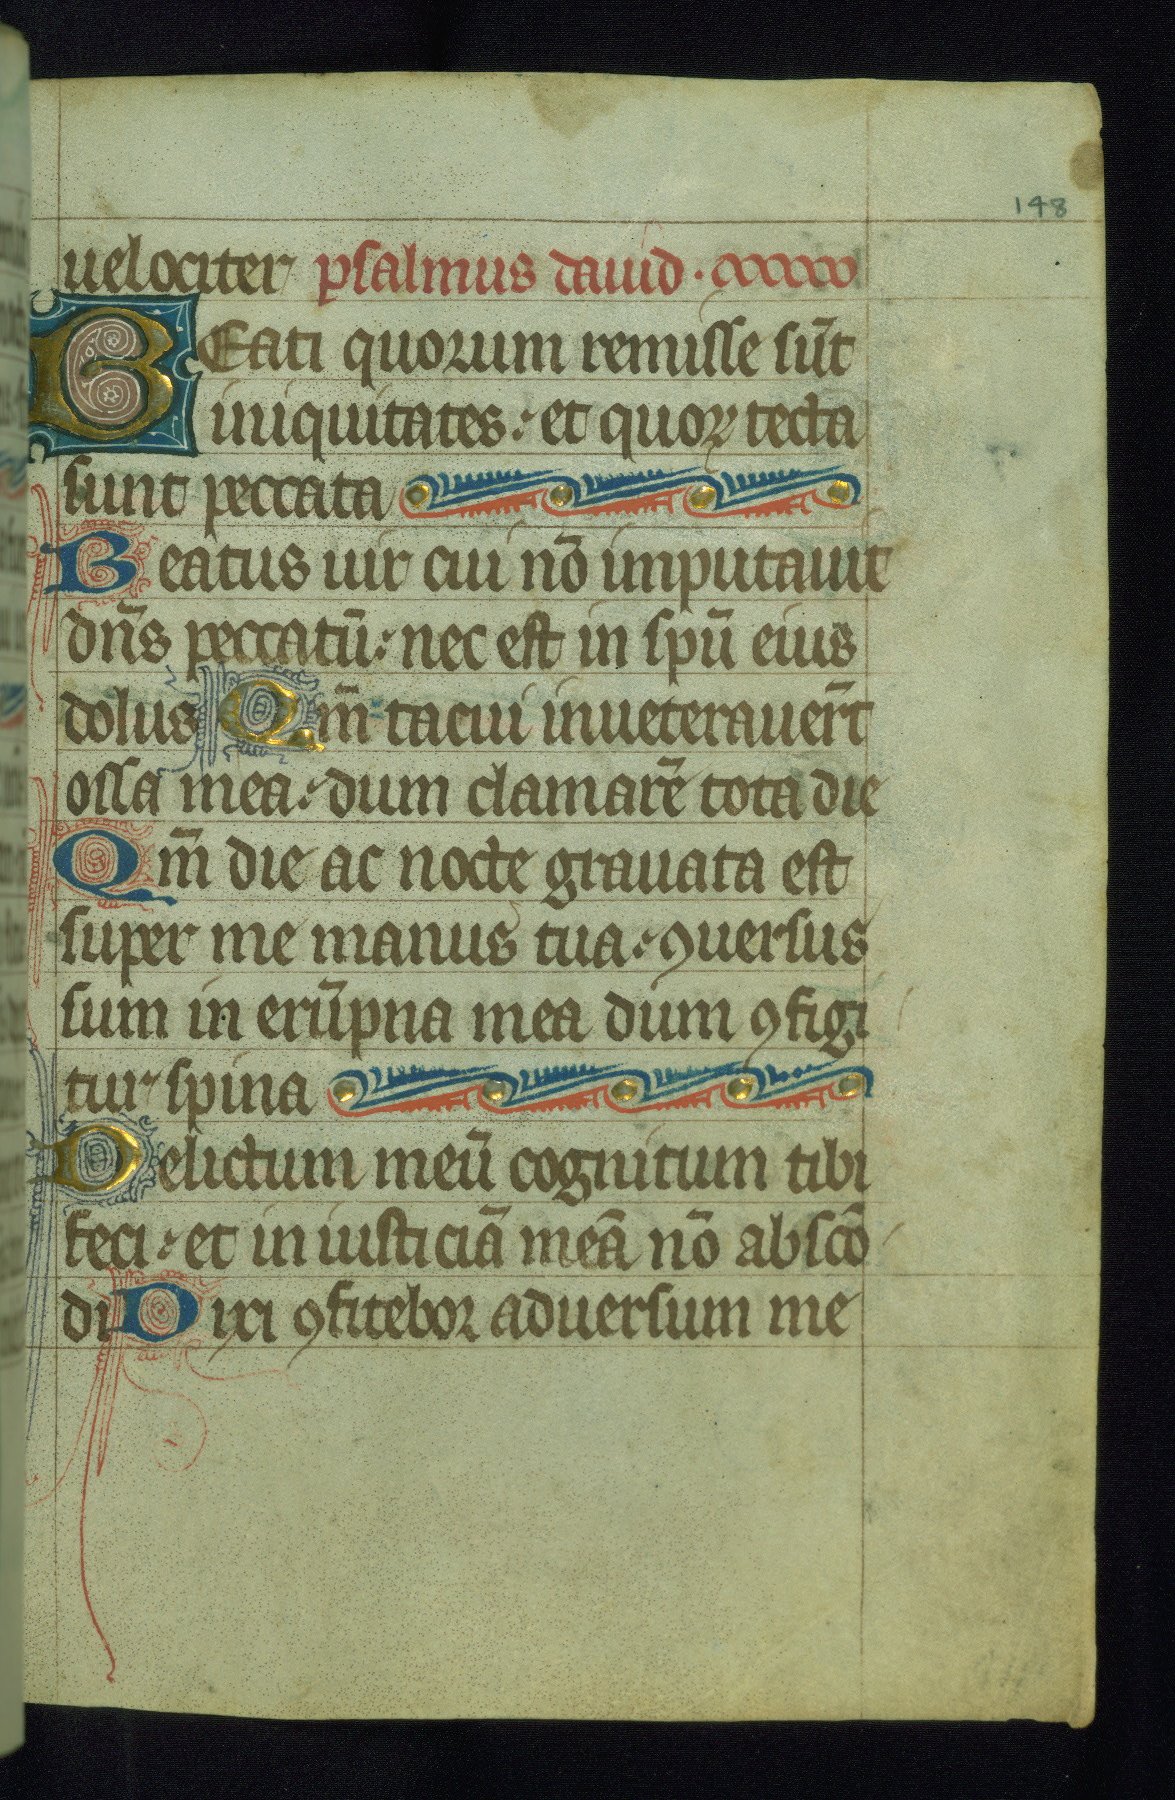 148
uelociter psalmus dauid.
BEati quorum remisse sũt
iniquitates: et quoꝝ tecta
sunt peccata
Beatus uir cui nõ imputauit
dñs peccatũ: nec est in spũ eius
dolus Qm̃ tacui inueterauer̃t
ossa mea: dum clamarẽ tota die
Qm̃ die ac nocte grauata est
super me manus tua: ꝯuersus
sum in erũpna mea dum ꝯfigi
tur spina
Delictum meũ cognitum tibi
feci: et in iusticiã meã nõ abscõ
di Dixi ꝯfitebor aduersum me